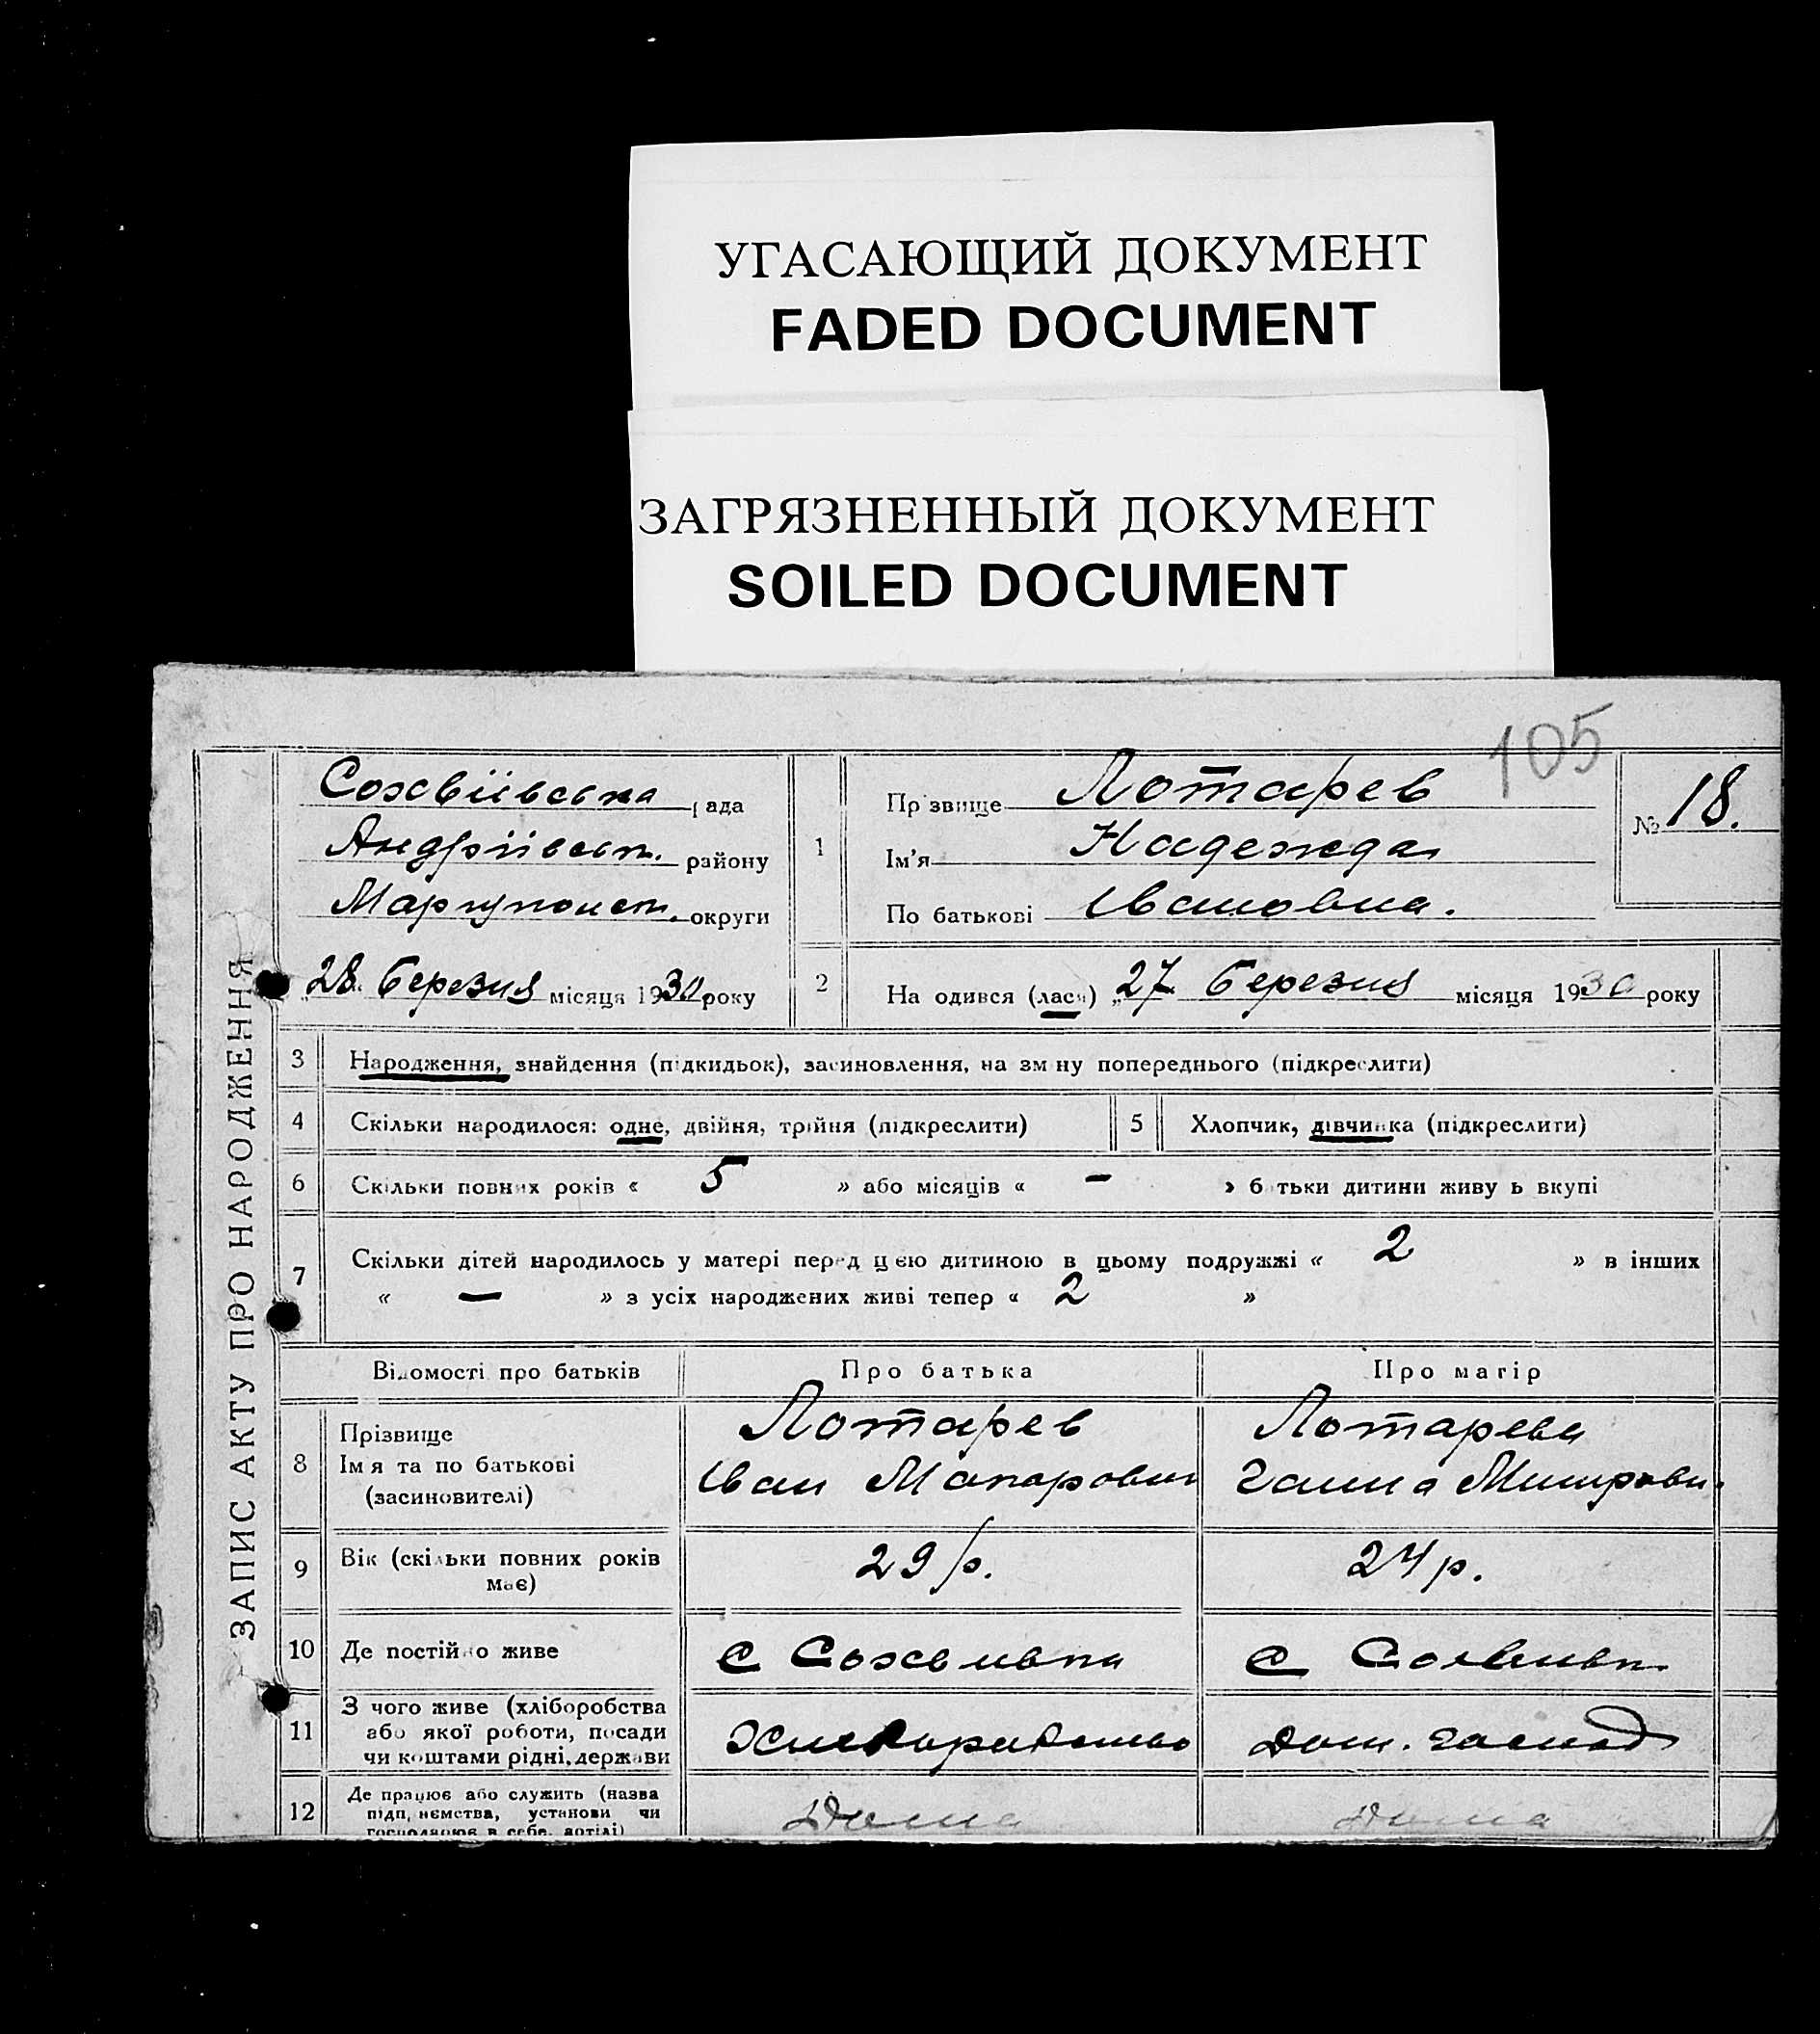 УГАСАЮЩИЙ ДОКУМЕНТ
FADED DOCUMENT
ЗАГРЯЗНЕННЫЙ ДОКУМЕНТ
SOILED DOCUMENT
105
ЗАПИС АКТУ ПРО НАРОДЖЕННЯ
рада
Андріівськ. району
Маріупольск. округи
28 березня місяця 1930 року
1
Прізвище Лотарев
Ім'я Надежда
По батькові Івановна.
№ 18.
2 На одився (лася) „27 березня місяця 1930 року
3 Народження, знайдення (підкидьок), засиновлення, на зміну попереднього (підкреслити)
4 Скільки народилося: одне, двійня, трійня (підкреслити) 5 Хлопчик, дівчинка (підкреслити)
6 Скільки повних років « 5 » або місяців « - » батьки дитини живуть вкупі
7 Скільки дітей народилось у матері перед цією дитиною в цьому подружжі « 2 » в інших
« — » з усіх народжених живі тепер « 2 »
Відомості про батьків Про батька Про матір
8 Прізвище Лотарев Лотарева
Ім я та по батькові Іван Макарович Ганна
(засиновителі)
9 Вік (скільки повних років має) 29 р. 24 р.
10 Де постійно живе с с
11 З чого живе (хліборобства
або якої роботи, посади Дом. господ
чи коштами рідні, держави
12 Де працює або служить (назва
підприємства, установи чи Дома Дома
господарює в себе, артілі)